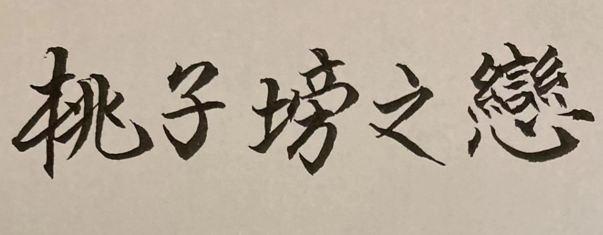 桃子塝之戀